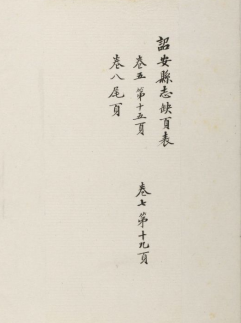 詔安縣志缺頁表
卷五第十五頁
卷七第十九頁
卷八尾頁